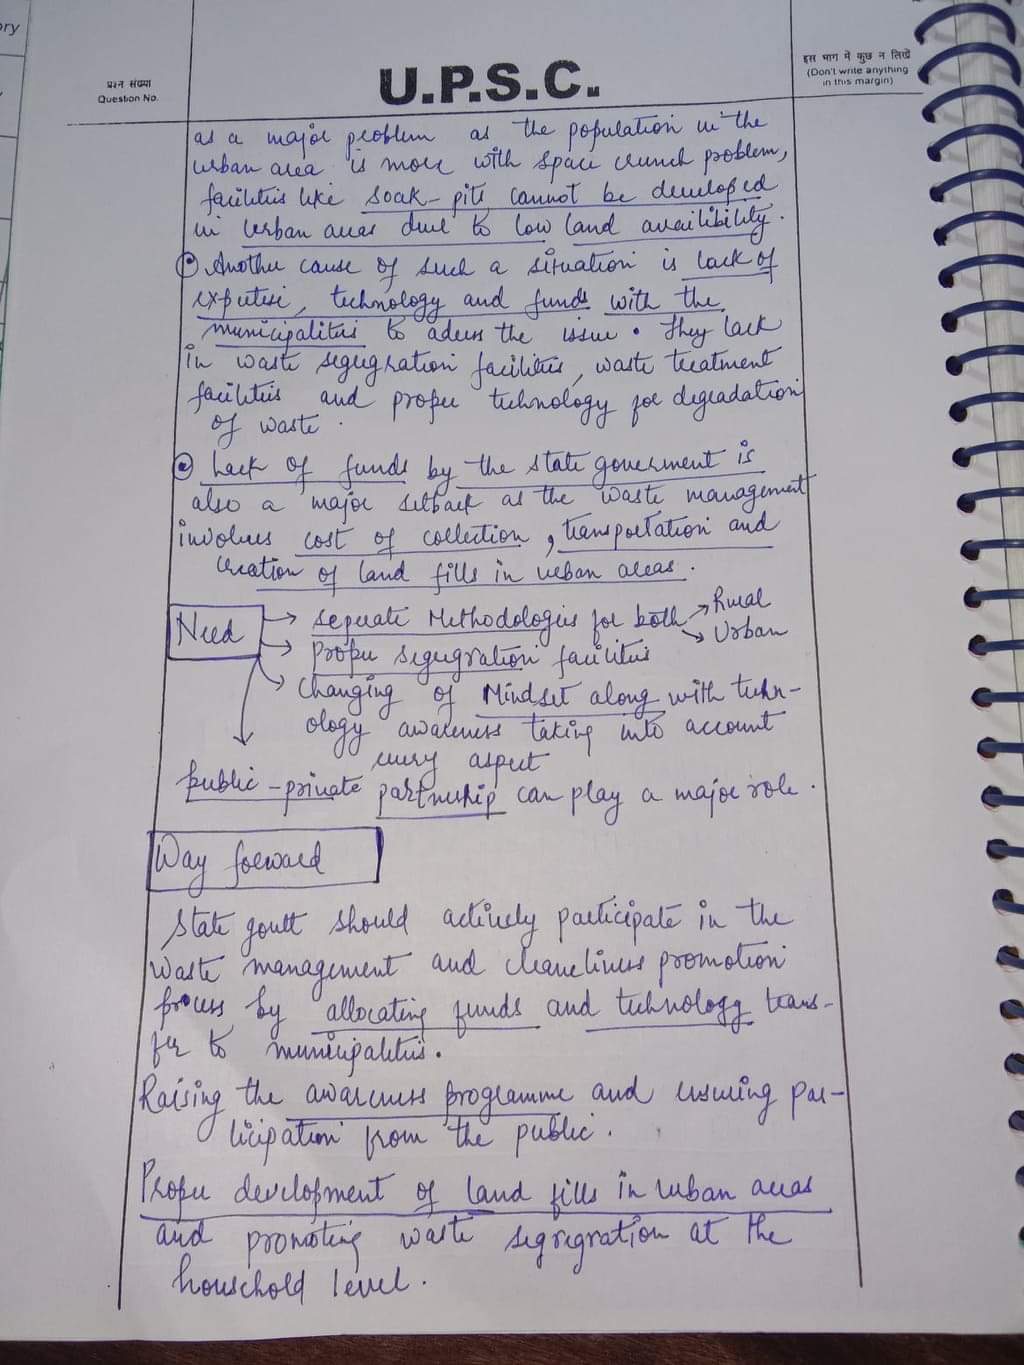 ory
प्रश्न संख्या
Question No.
U.P.S.C.
इस भाग में कुछ न लिखें
(Don't write anything
in this margin)
as a major problem as the population in the
urban area is more with space crunch problem,
facilities like soak-pits cannot be developed
in urban areas due to low land availibility.
Another cause of such a situation is lack of
expertise, technology and funds with the
municipalities to adress the issue. They lack
in waste segregation facilities, waste treatment
facilities and proper technology for degradation
of waste.
Lack of funds by the state government is
also a major setback as the waste management
involves cost of collection, transportation and
creation of land fills in urban areas.
Need → seperate Methodologies for both → Rural
→ Urban
→ proper segregation facilities
→ Changing of Mindset along with techn-
ology awareness taking into account
every aspect
public-private partnership can play a major role.
Way forward
State govtt should actively participate in the
waste management and cleanliness promotion
process by allocating funds and technology trans-
fer to municipalities.
Raising the awareness programme and ensuring par-
ticipation from the public.
Proper development of land fills in urban areas
and promoting waste segregation at the
household level.